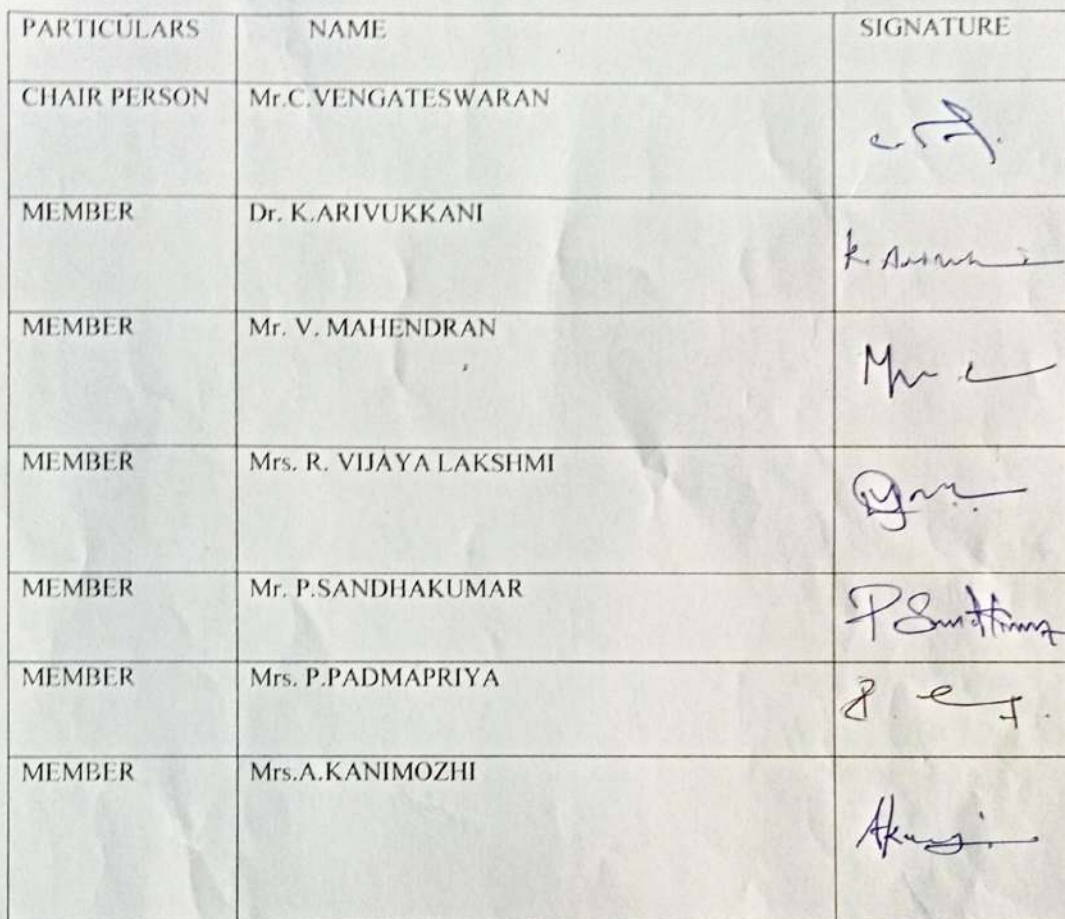 PARTICULARS NAME SIGNATURE
CHAIR PERSON Mr.C.VENGATESWARAN
MEMBER Dr. K.ARIVUKKANI
K.
MEMBER Mr. V. MAHENDRAN
MEMBER Mrs. R. VIJAYA LAKSHMI
MEMBER Mr. P.SANDHAKUMAR
P
MEMBER Mrs. P.PADMAPRIYA
MEMBER Mrs.A.KANIMOZHI